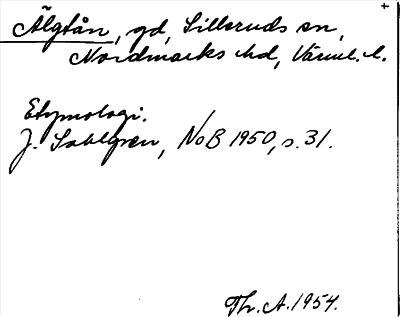 +
Älgtån, gd, Silleruds sn,
Nordmarks hd, Värml. l.
Etymologi.
J. Sahlgren, NoB 1950, s. 31.
Th. A. 1954.